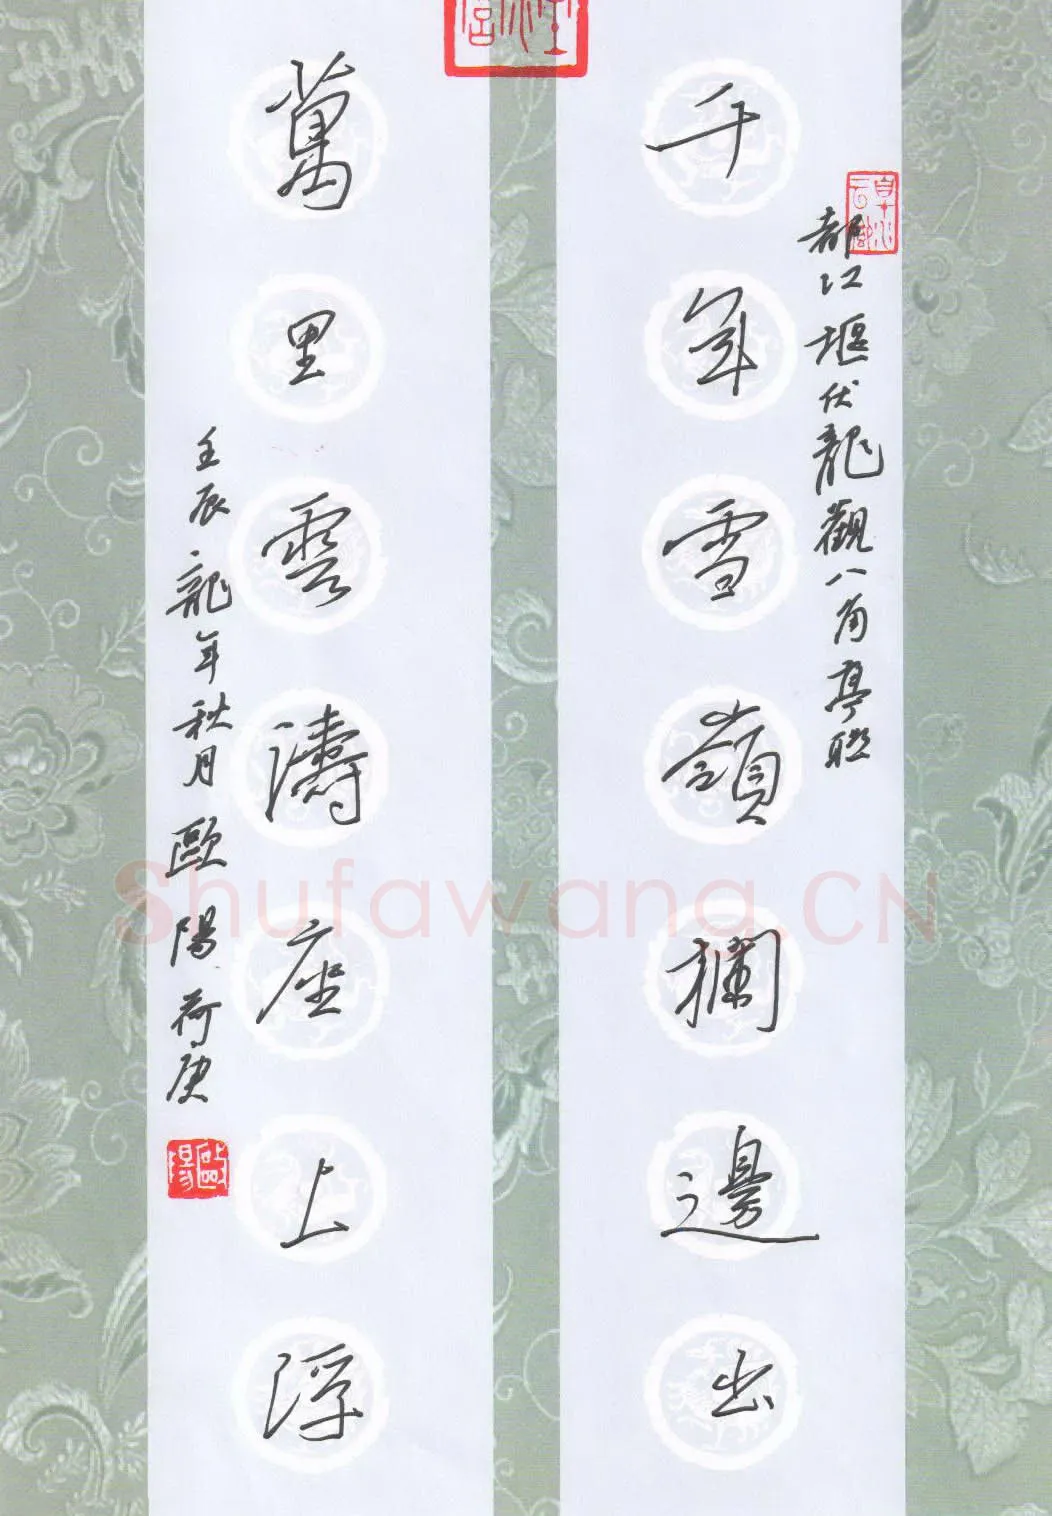 都江堰伏龍觀八角亭联
千年雪嶺欄邊出
萬里雲濤座上浮
壬辰龍年秋月歐陽荷庚
歐陽
Shufawang.CN